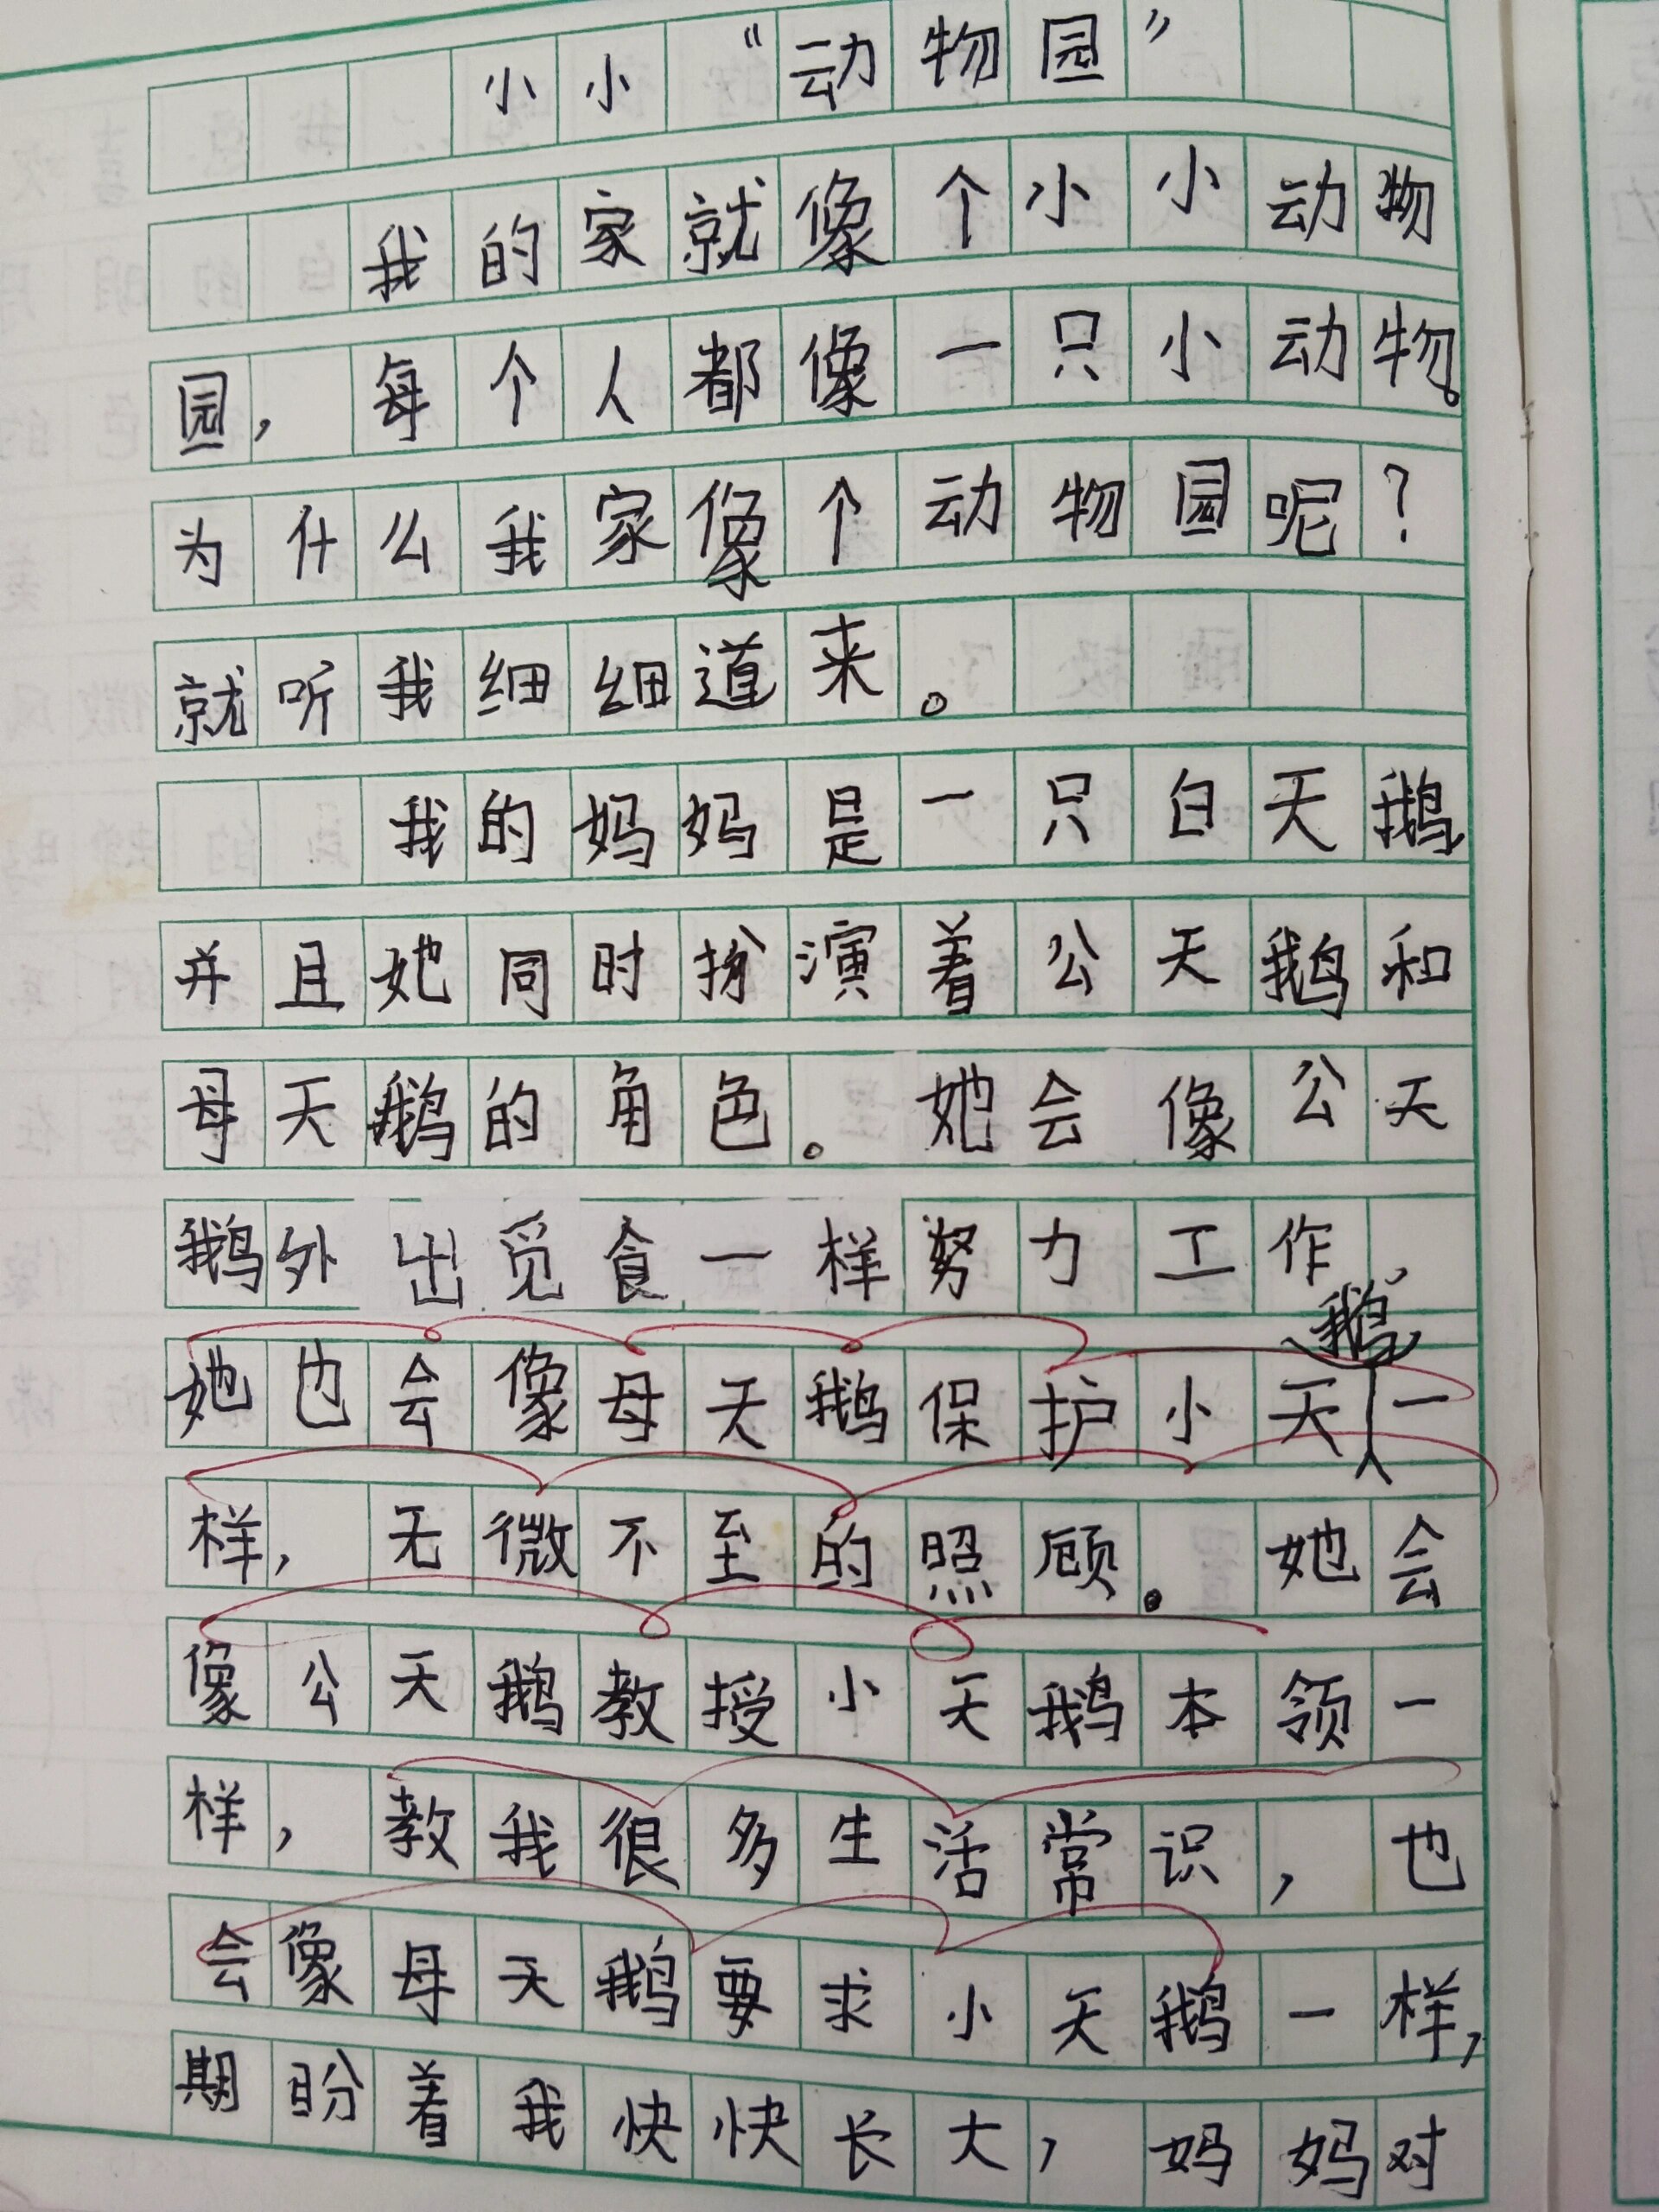 小小“动物园”
我的家就像个小小动物
园，每个人都像一只小动物。
为什么我家像个动物园呢？
就听我细细道来。
我的妈妈是一只白天鹅，
并且她同时扮演着公天鹅和
母天鹅的角色。她会像公天
鹅外出觅食一样努力工作，
她也会像母天鹅保护小天鹅一
样，无微不至的照顾。她会
像公天鹅教授小天鹅本领一
样，教我很多生活常识，也
会像母天鹅要求小天鹅一样，
期盼着我快快长大，妈妈对